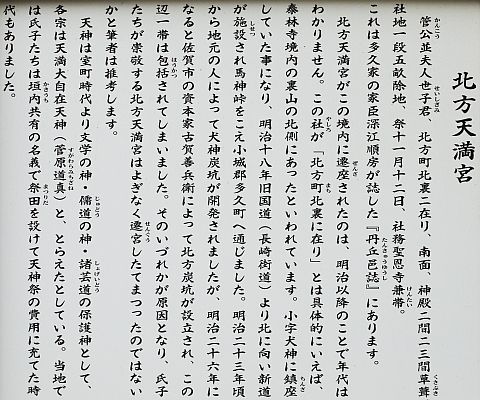 北方天満宮
菅公並夫人世子君、北方町北裏二在り、南面、神殿二間二三間草葺
社地一段五畝除地、祭十一月十二日、社務聖恩寺兼帯。
これは多久家の家臣深江順房が誌した『丹丘邑誌』にあります。
北方天満宮がこの境内に遷座されたのは、明治以降のことで年代は
わかりません。この社が「北方町北裏に在り」とは具体的にいえば、
泰林寺境内の裏山の北側にあったといわれています。小字天神に鎮座
していた事になり、明治十八年旧国道（長崎街道）より北に向い新道
が施設され馬神峠をこえ小城郡多久町へ通じました。明治二十三年頃
から地元の人によって大神炭坑が開発されましたが、明治二十六年に
なると佐賀市の資本家古賀善兵衛によって北方炭坑が設立され、この
辺一帯は包括されてしまいました。そのいづれかが原因となり、氏子
たちが崇敬する北方天満宮はよぎなく遷宮したてまつつたのではない
かと筆者は推考します。
天神は室町時代より文学の神・儒道の神・諸芸道の保護神として、
各宗は天満大自在天神（菅原道真）と、とらえたとしている。当地で
は氏子たちは垣内共有の名義で祭田を設けて天神祭の費用に充てた時
代もありました。